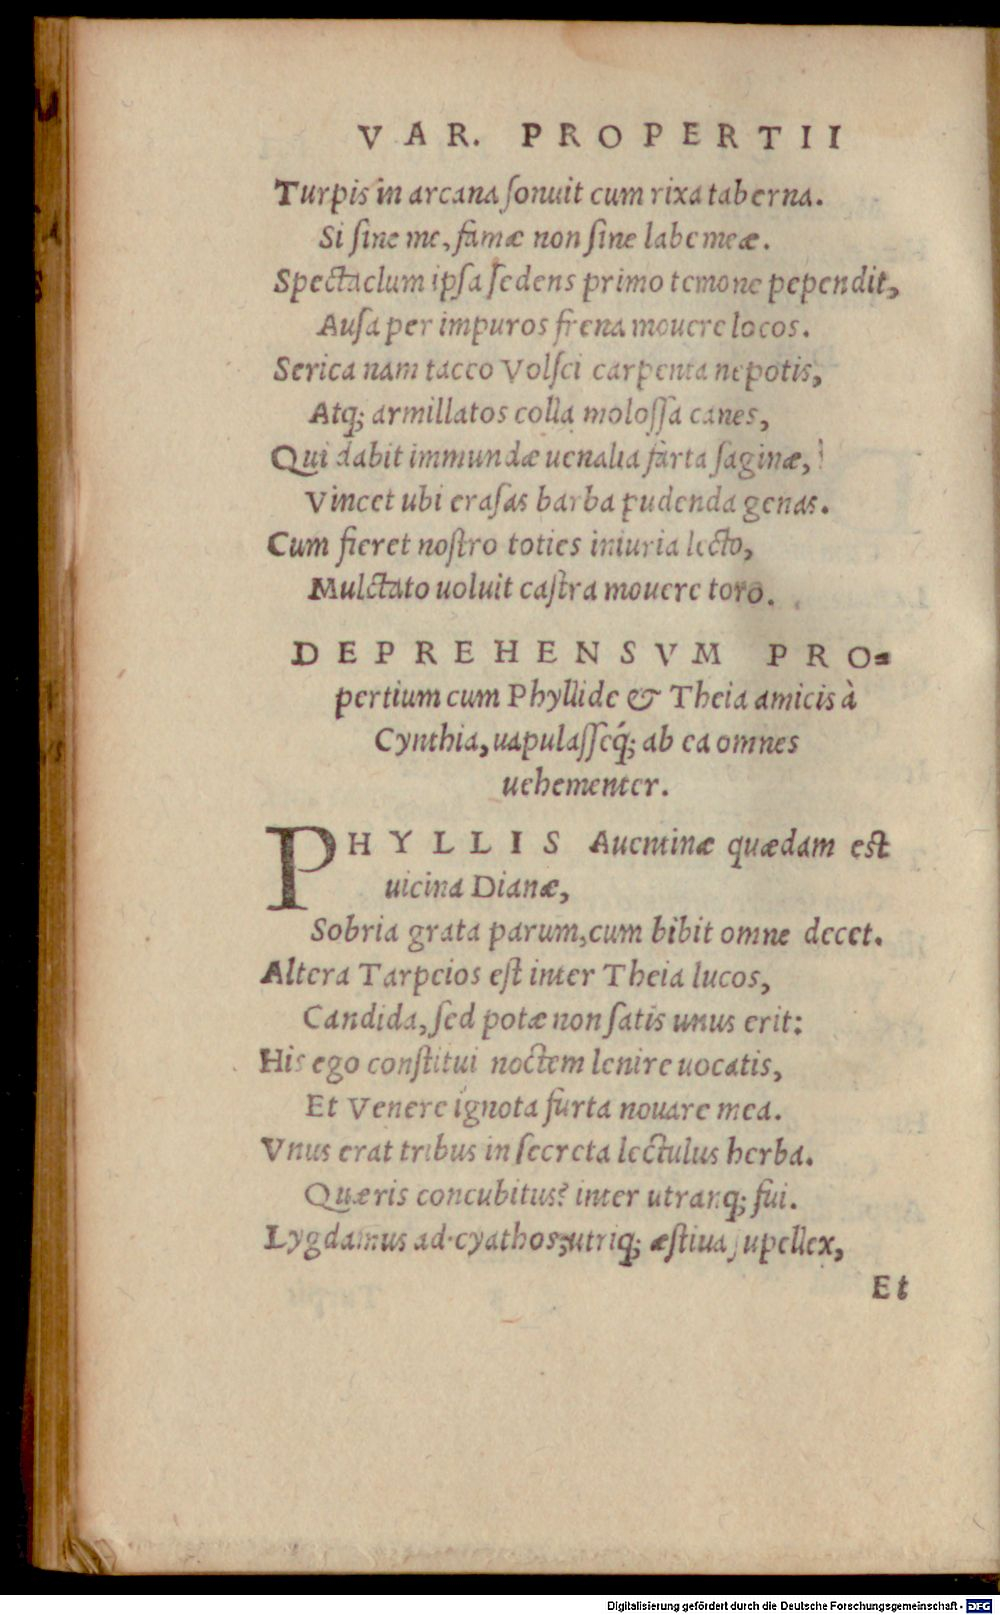 VAR. PROPERTII
Turpis in arcana ſonuit cum rixa taberna.
Si ſine me, famæ non ſine labe meæ.
Spectaclum ipſa ſedens primo temone pependit,
Auſa per impuros frena mouere locos.
Serica nam taceo Volſci carpenta nepotis,
Atq; armillatos colla moloſſa canes,
Qui dabit immundæ uenalia farta ſaginæ,
Vincet ubi eraſas barba pudenda genas.
Cum fieret noſtro toties iniuria lecto,
Mulctato uoluit caſtra mouere toro.
DEPREHENSVM PRO-
pertium cum Phyllide & Theia amicis à
Cynthia, uapulaſſeq́; ab ea omnes
uehementer.
PHYLLIS Auentinæ quædam est
uicina Dianæ,
Sobria grata parum, cum bibit omne decet.
Altera Tarpeios eſt inter Theia lucos,
Candida, ſed potæ non ſatis unus erit:
His ego conſtitui noctem lenire uocatis,
Et Venere ignota furta nouare mea.
Vnus erat tribus in ſecreta lectulus herba.
Quæris concubitus? inter utranq; fui.
Lygdamus ad cyathos, utriq; æſtiua ſupellex,
Et
Digitalisierung gefördert durch die Deutsche Forschungsgemeinschaft - DFG